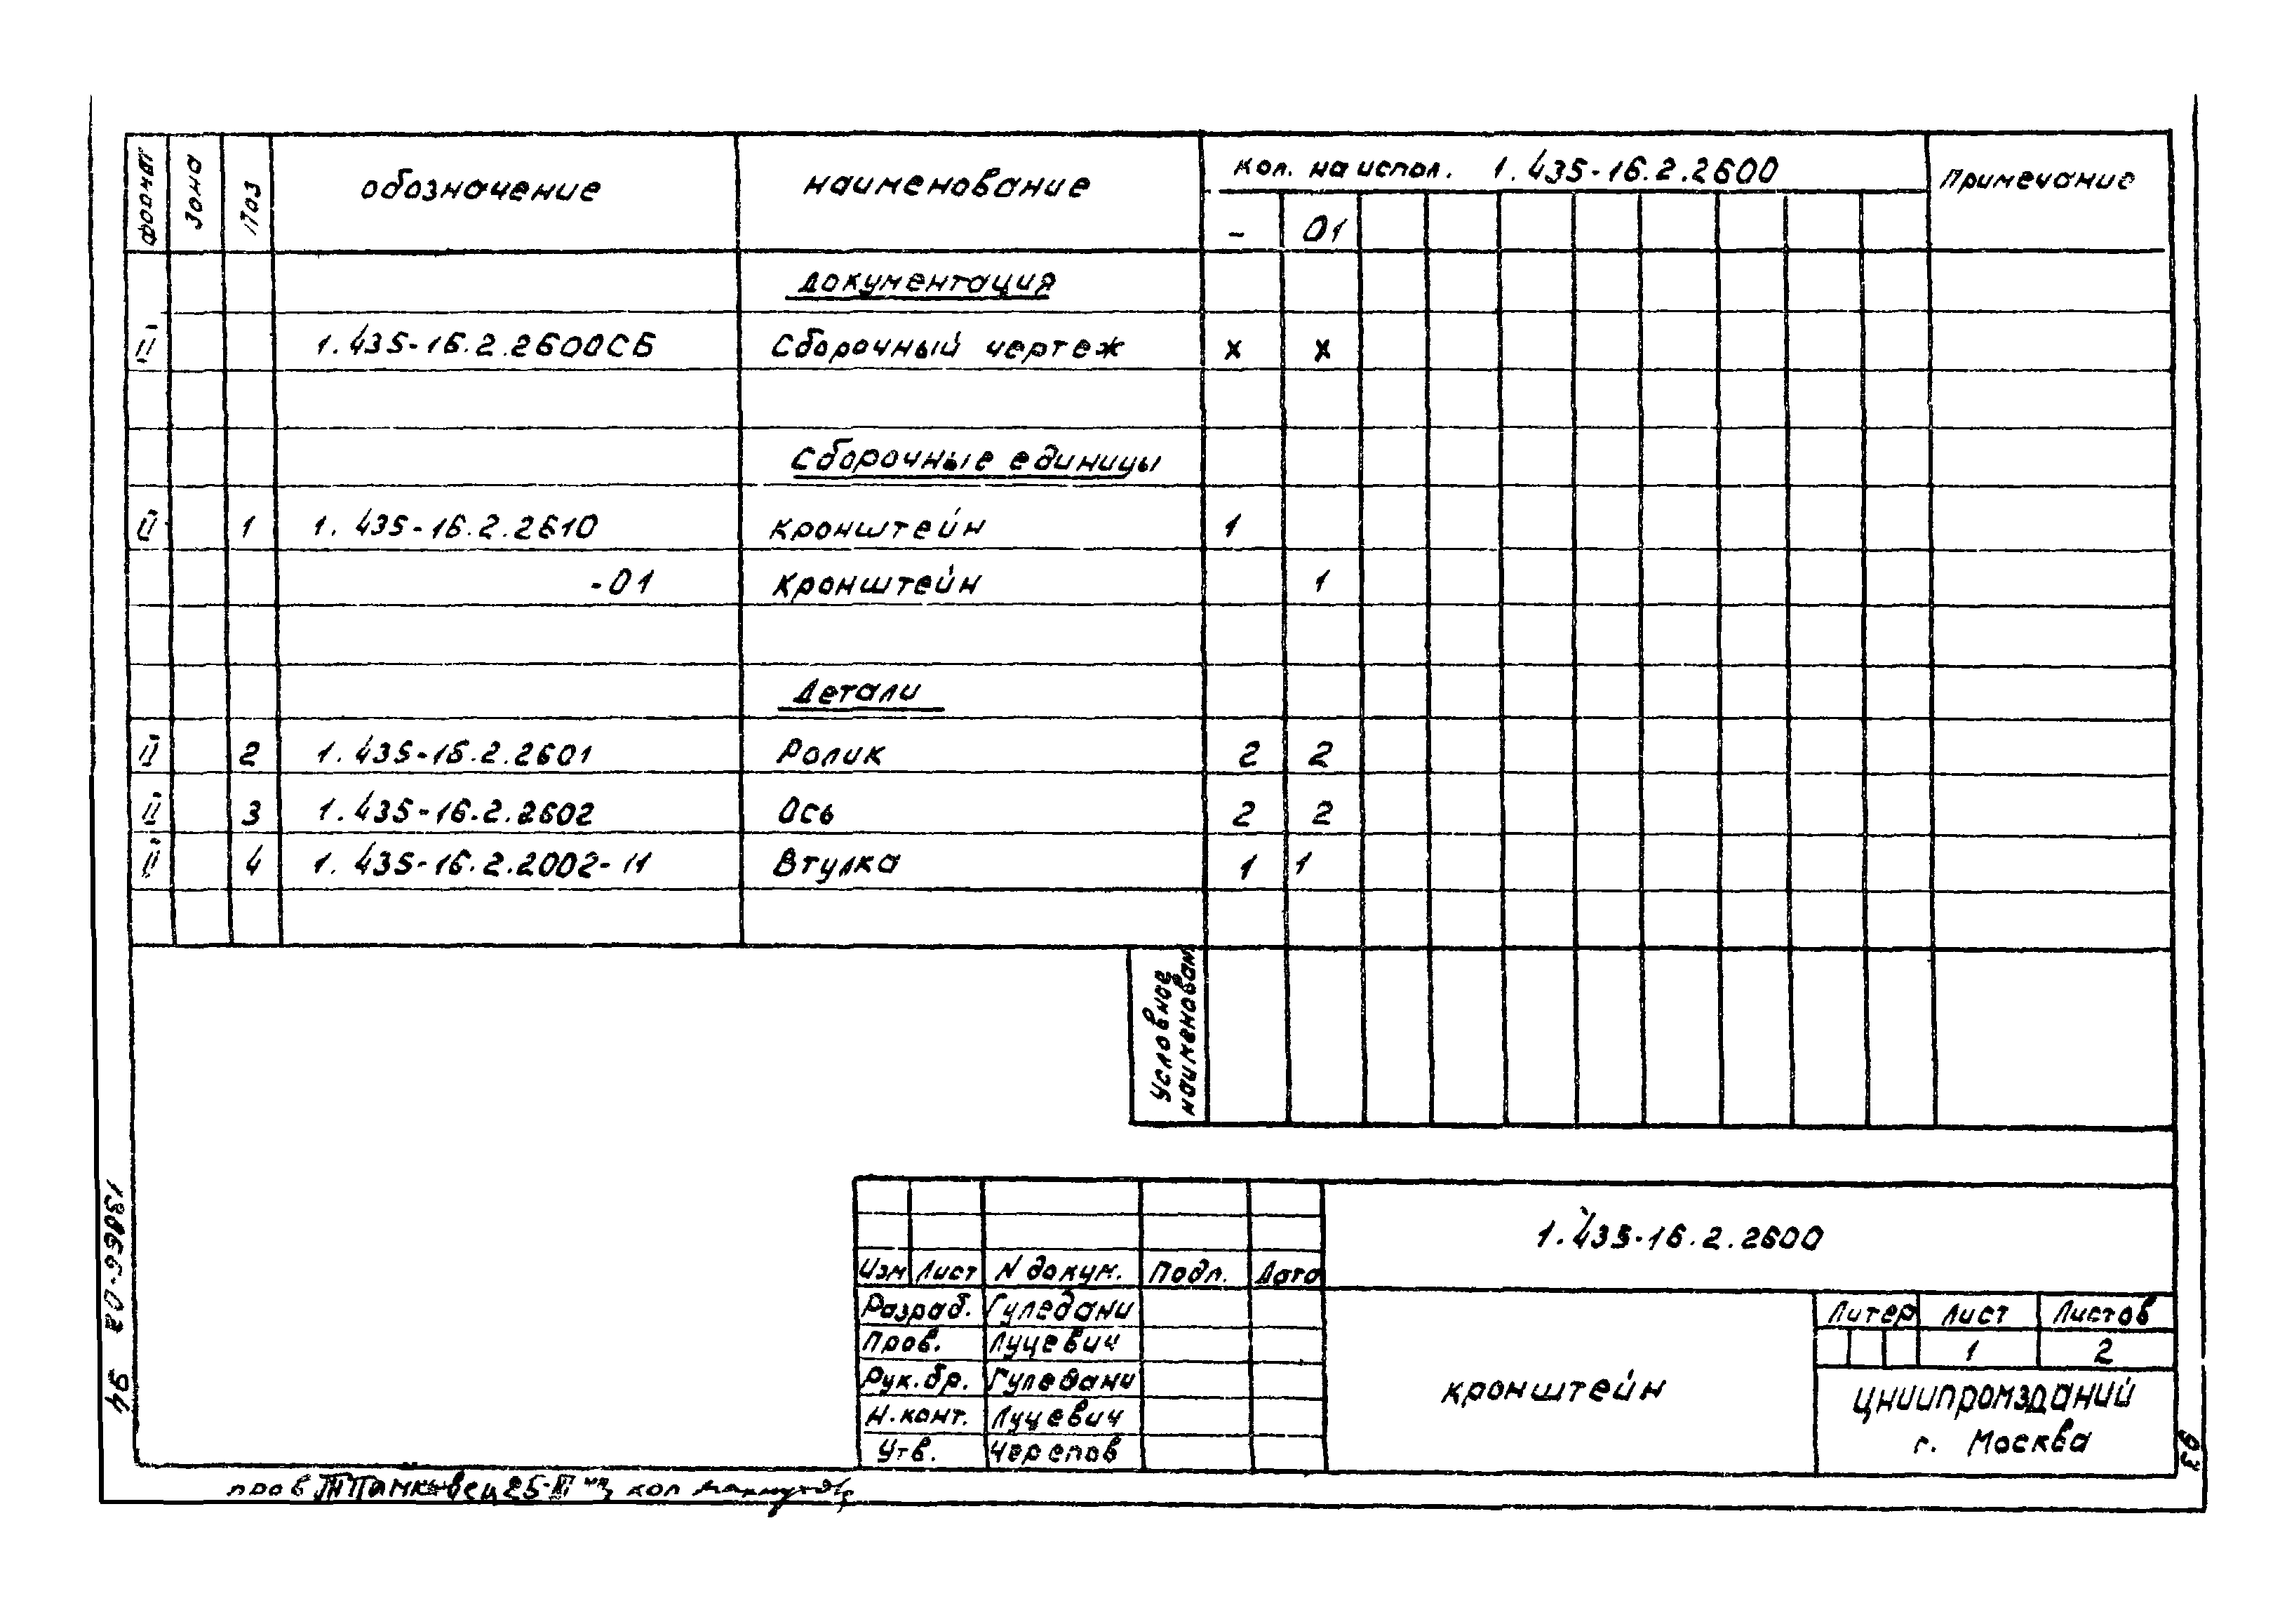 формат Зона Поз обозначение наименование Кол. на испол. 1.435-16.2.2600 примечание
- 01
документация
11 1.435-16.2.2600СБ Сборочный чертеж х х
Сборочные единицы
11 1 1.435-16.2.2610 кронштейн 1
-01 кронштейн 1
Детали
11 2 1.435-16.2.2601 Ролик 2 2
11 3 1.435-16.2.2602 Ось 2 2
11 4 1.435-16.2.2002-11 Втулка 1 1
Условное
наименован.
1.435-16.2.2600
Изм Лист N докум. Подп. Дата
Разраб. Гуледани
Пров. Луцевич
Рук.бр. Гуледани
Н.конт. Луцевич
Утв. Черепов
кронштейн
Литер Лист Листов
1 2
ЦНИИПРОМЗДАНИЙ
г. Москва
13086-02 94
93
пров кол